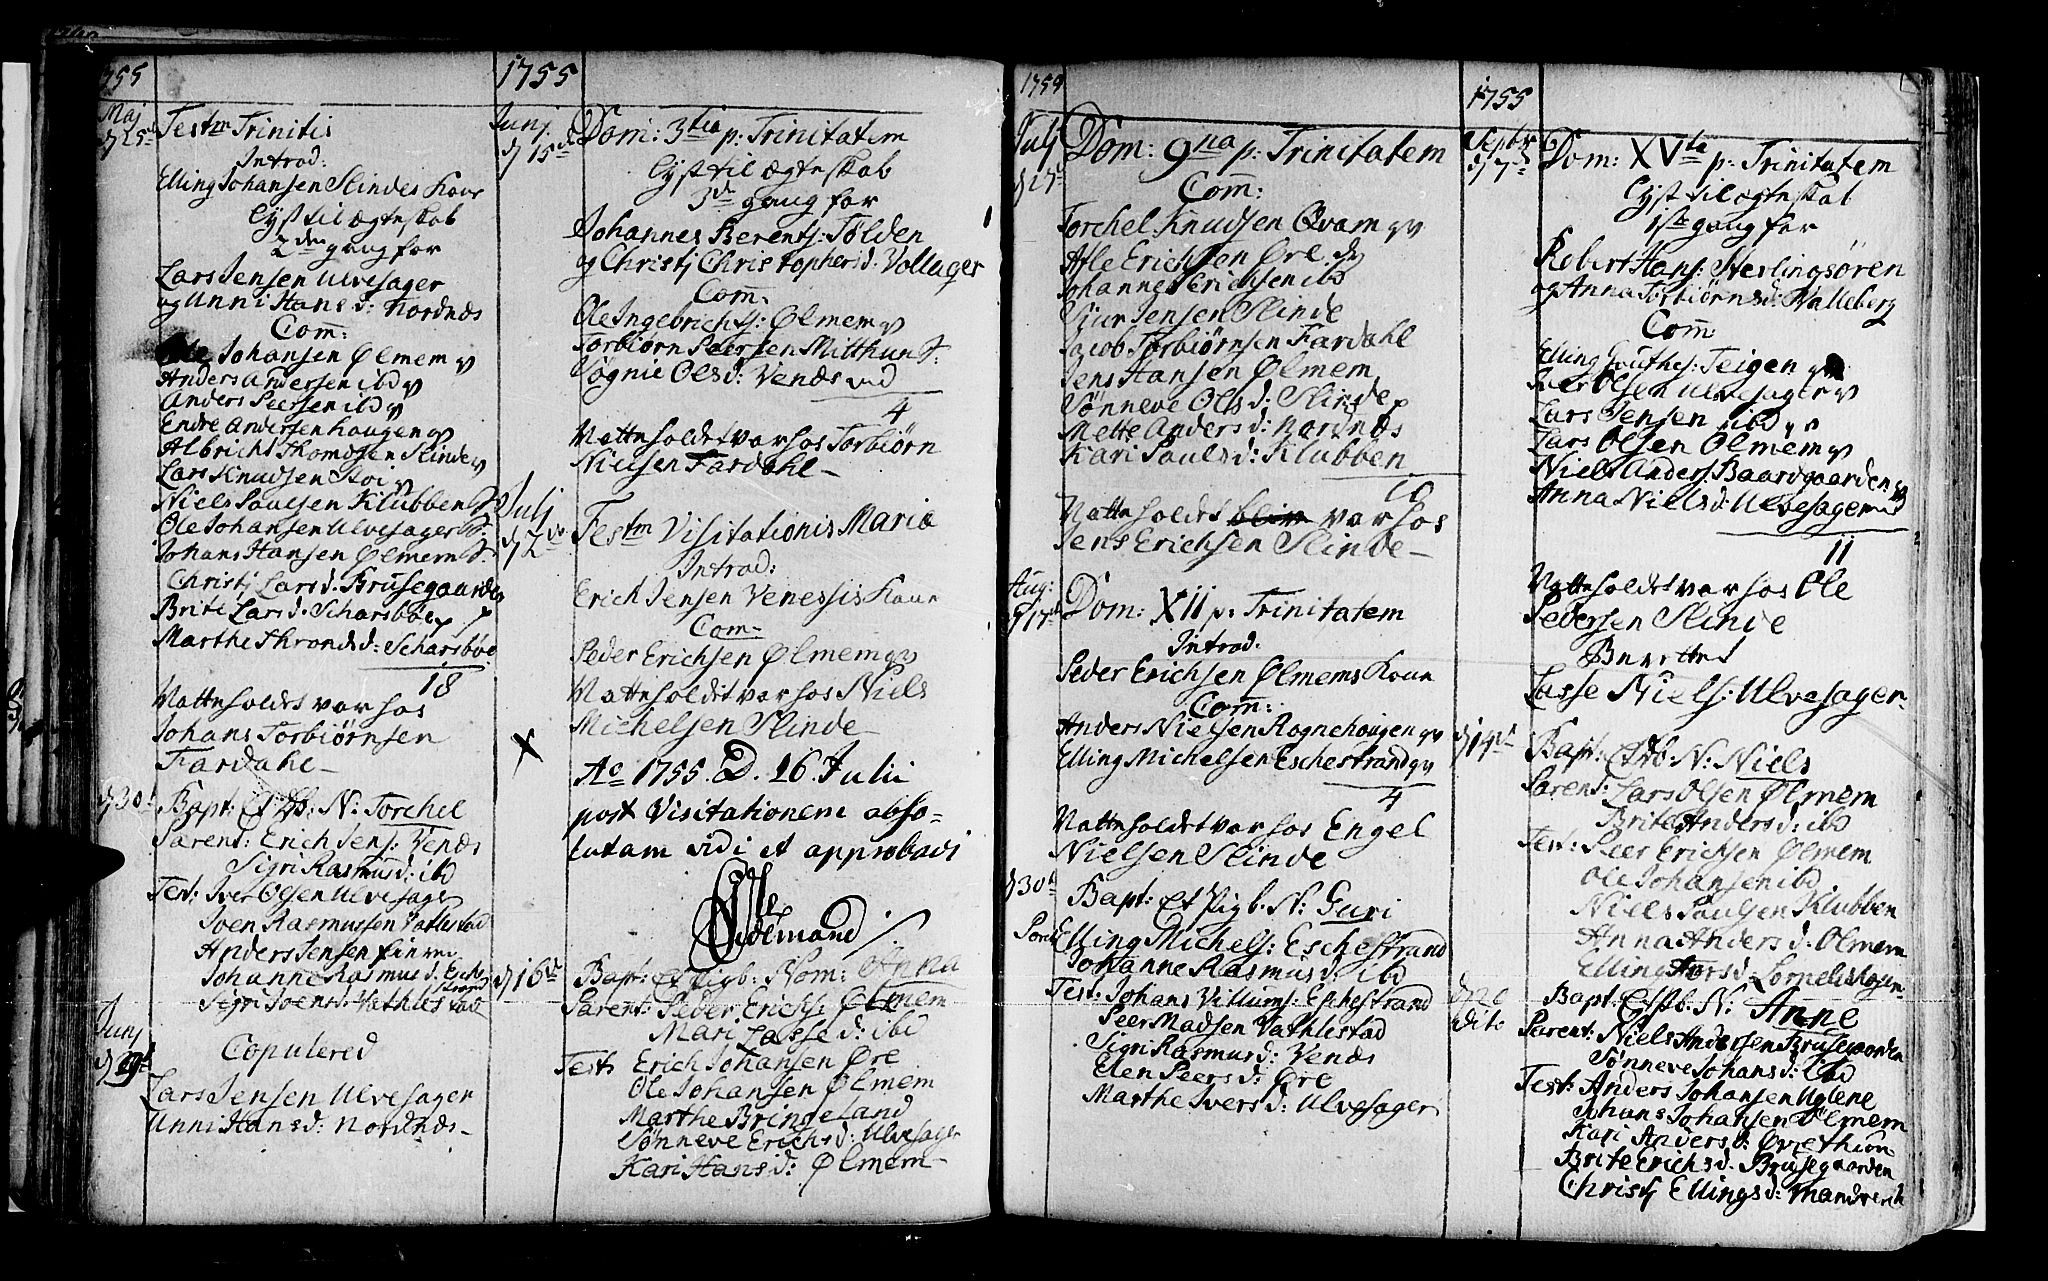 1755
Maj
d 25de
Festm Trinitis
Introd:
Elling Johansen Slindes Kone
Lyst til ægteskab
2den gang for
Lars Jensen Ulvesager
og Unni Hans d: Nordnæs
Com:
Ole Johansen Ølmem
Anders Andersen ibd
Anders Peersen ibd
Endre Andersen Haugen
Albricht Thomasen Slinde
Lars Knudsen Stoi
Niels Paulsen Klubben
Ole Johansen Ulvesager
Johans Hansen Ølmem
Christj Lars d. Brusegaarden
Brite Lars d. Scharsbøe
Marthe Thronds d: Scharsbøe
18
Nattholdet var hos
Johans Torbiørnsen
Fardahl
d 30
Bapt: et N: Torchel
Parent: Erich Jens: Venæs
Sigri Rasmus d: ibd
Test: Iver Olsen Ulvesager
Iven Rasmussen Vathlestad
Anders Jensen
Johanne Rasmus d. Esche
strand
Sigri Joens: Vathlestad
Junj
d 29
Copulered
Lars Jensen Ulvesager
Unni Hans d: Nordnæs
1755
Junj
d 15de
Dom: 3tia p: Trinitatem
Lyst til ægteskab
3de gang for
Johannes Berents: Tølden
og Christj Christophers d. Vollager
Com:
Ole Ingebrichts: Ølmem
Torbiørn Peersen Mitthun
Søgnie Ols d: Venæs
4
Nattholdet var hos Torbiørn
Nielsen Fardahl
Julj
d 2de
Festm Visitationis Mariæ
Introd:
Erich Jensen Venessis Kone
Com
Peder Erichsen Ølmem
Nattholdet var hos Niels
Michelsen Slinde
X
Ao 1755. D. 16 Julii
post Visitationem abso-
lutam vidi et approbavi
Tidemand
d 16de
Bapt: et Pigb: Nom: Anna
Parent: Peder Erichs: Ølmem
Mari Lasse d: ibd
Test: Erich Johansen Øre
Ole Johansen Ølmem
Marthe Brinde Land
Sønneve Erichs d: Ulvesager
Kari Hans d: Ølmem
1755
Julj
d 27
Dom: 9na p: Trinitatem
Com:
Torchel Knudsen Qvam
Atle Erichsen Øre
Johannes Erichsen ibd
Siur Jensen Slinde
Jacob Torbiørnsen Fardahl
Jens Hansen Ølmem
Sønneve Ols d: Slinde
Mette Anders d: Nordnæs
Kari Pauls d: Klubben
10
Nattholdet var hos
Jens Erichsen Slinde
Aug:
d 17de
Dom: XII p: Trinitatem
Introd:
Peder Erichsen Ølmems Kone
Com:
Anders Nielsen Rognehougen
Elling Michelsen Eschestrand
4
Nattholdet var hos Engel
Nielsen Slinde
d 30
Bapt: et Pigb. N: Guri
Parent: Elling Michels: Eschestrand
Johanne Rasmus d ibd
Test: Johans Villums: Eschestrand
Peer Madsen Vathlestad
Sigri Rasmus d: Venæs
Elen Peers d: Øre
Marthe Ivers d: Ulvesager
1755
Septbr
d 7de
Dom: XVta p: Trinitatem
Lyst til ægteskab
1ste gang for
Robert Hans: Sterlingsøren
og Anna Torbiørns d: Walleberg
Com:
Elling Gouthes: Teigen
Iver Olsen Ulvesager
Lars Jensen ibd
Lars Olsen Ølmem
Niels Anders: Baardgaarden
Anna Niels d: Ulvesager
11
Nattholdet var hos Ole
Pedersen Slinde
Lasse Niels: Ulvesager
d 14de
Bapt: et N: Niels
Parent: Lars Olsen Ølmem
Brite Anders d: ibd
Test: Peer Erichsen Ølmem
Ole Johansen ibd
Niels Paulsen Klubben
Anna Anders d: Ølmem
dito
Bapt: et Pb. N: Anne
Parent: Niels Andersen Brusegaarden
Sønneve Johans d: ibd
Test: Anders Johansen Uglene
Johans Johansen Ølmem
Kari Anders d: Øvrethun
Brite Erichs d. Brusegaarden
Christj Ellings d: